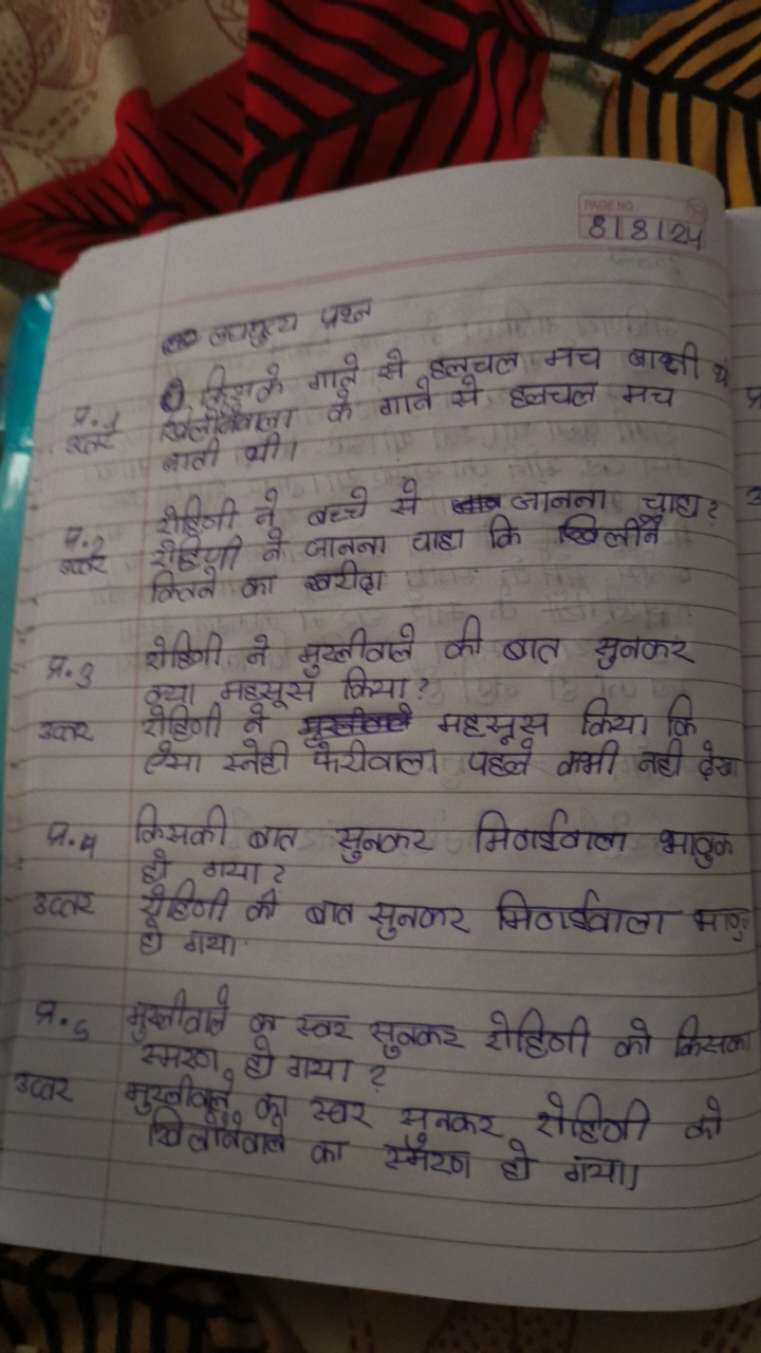 PAGE NO.:
8/8/24
लघुमूल्य प्रश्न
प्र.1 ① किसके गाने से हलचल मच जाती थी
उत्तर खिलौनेवाला के गाने से हलचल मच
जाती थी।
प्र.2 रोहिणी ने बच्चे से जानना चाहा?
उत्तर रोहिणी ने जानना चाहा कि खिलौने
कितने का खरीदा
प्र.3 रोहिणी ने मुरलीवाले की बात सुनकर
क्या महसूस किया?
उत्तर रोहिणी ने महसूस किया कि
ऐसा स्नेही फेरीवाला पहले कभी नही देखा
प्र.4 किसकी बात सुनकर मिठाईवाला भावुक
हो गया?
उत्तर रोहिणी की बात सुनकर मिठाईवाला भावु
हो गया
प्र.5 मुरलीवाले का स्वर सुनकर रोहिणी को किसका
स्मरण हो गया?
उत्तर मुरलीवाले का स्वर सुनकर रोहिणी को
खिलौनेवाले का स्मरण हो गया।